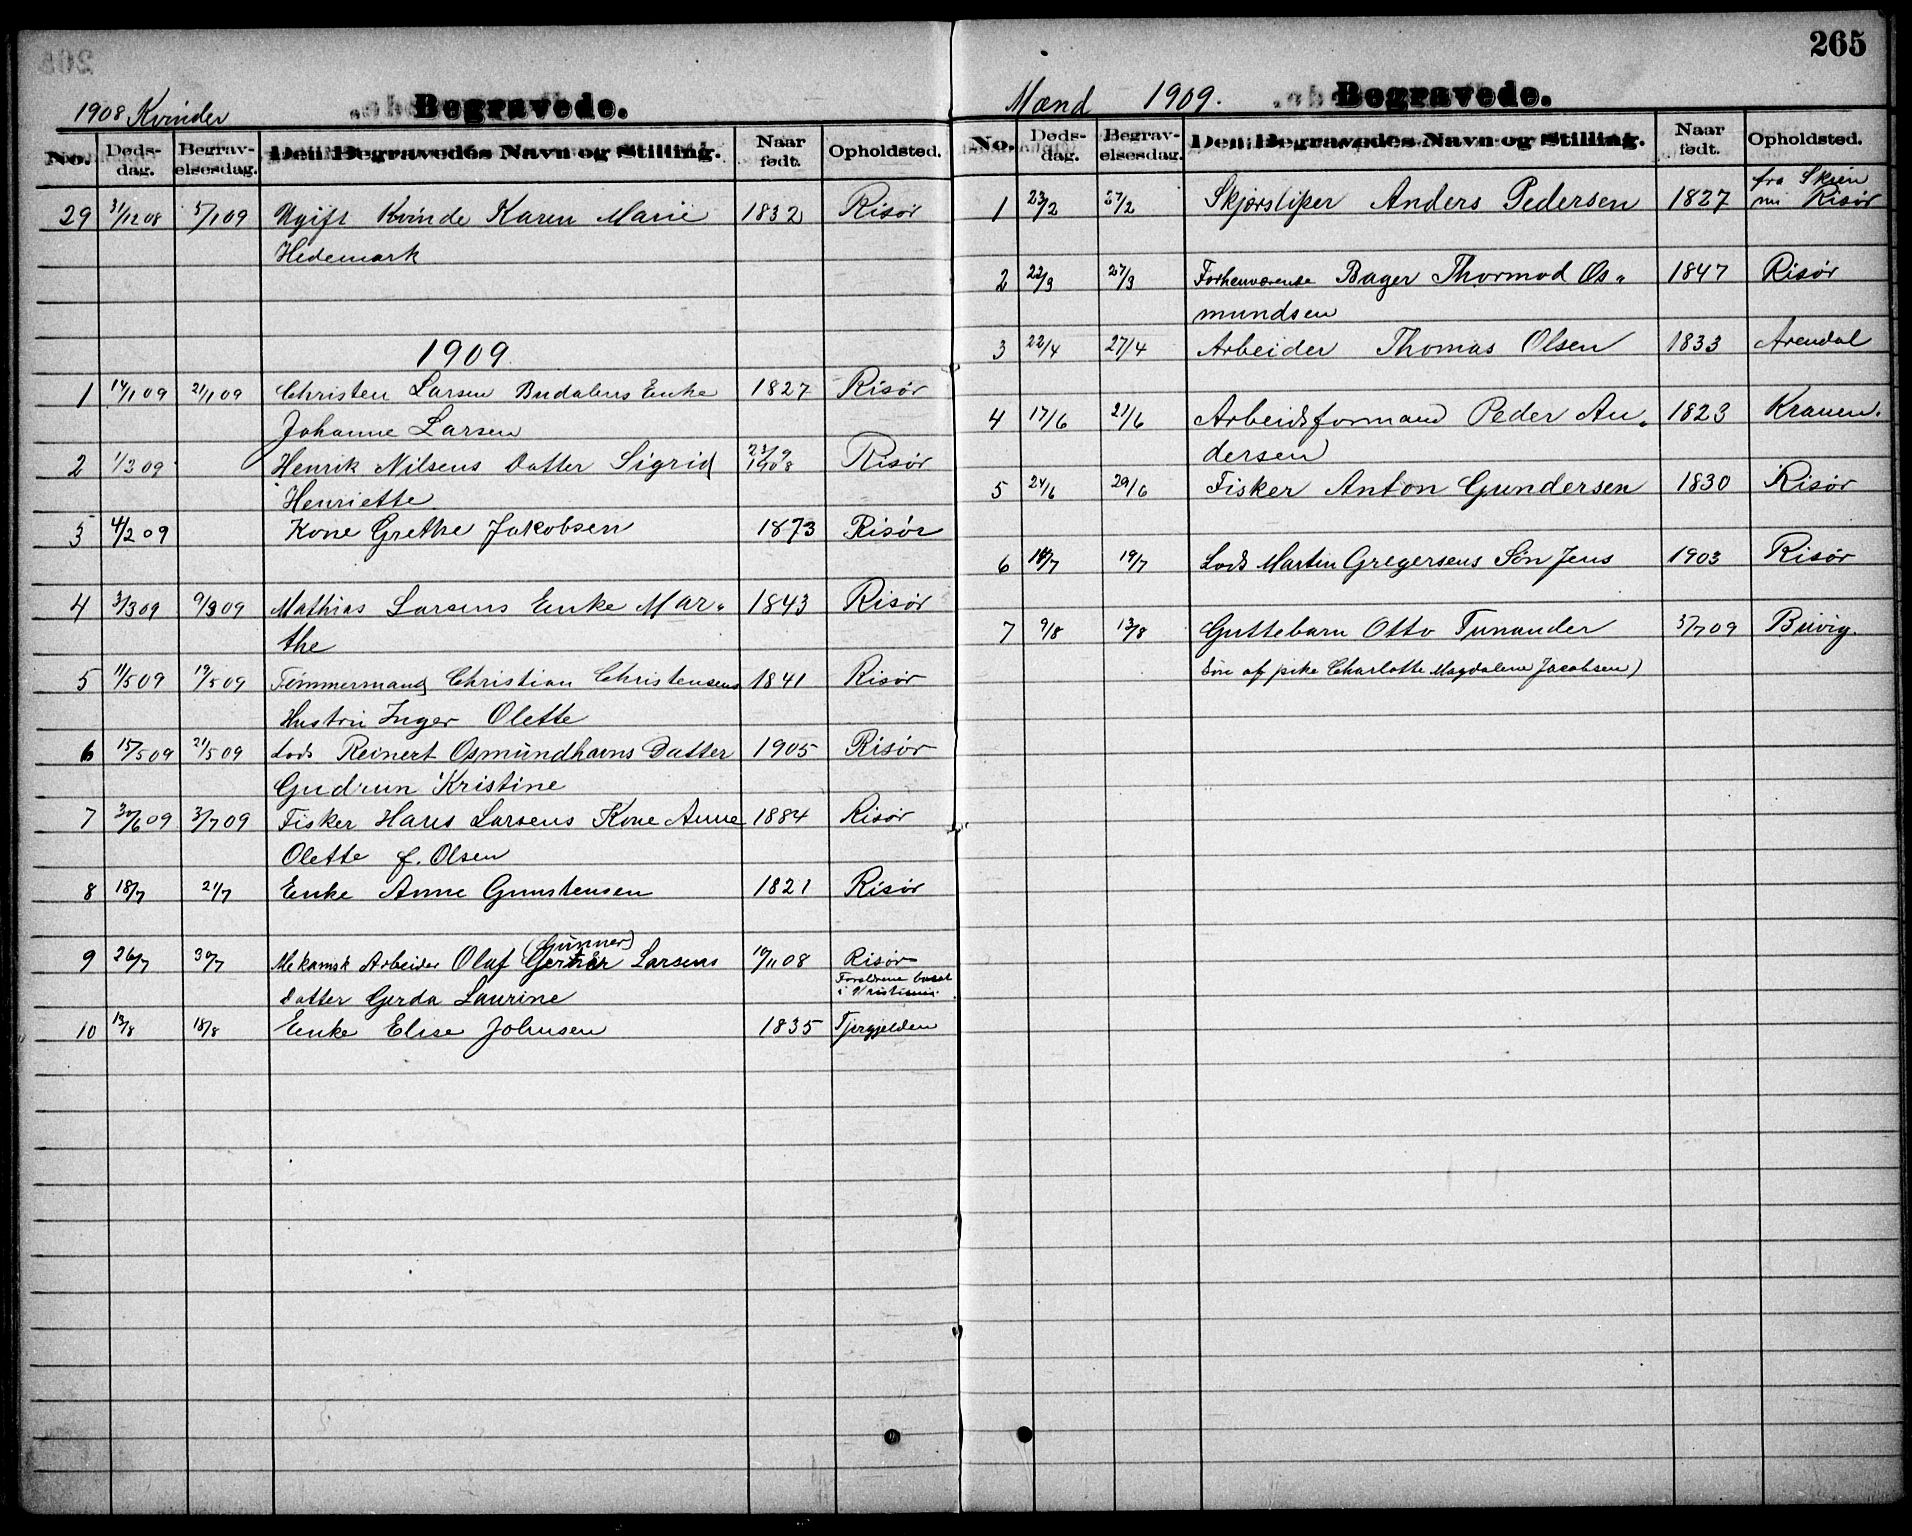 1908 Kvinder
Begravede.
No. Døds-dag. Begrav-elsesdag. Den Begravedes Navn og Stilling. Naar født. Opholdsted.
29 31/12 08 5/1 09 Ugift Kvinde Karen Marie 1832 Risør
Hedemark
1909.
1 14/1 09 21/1 09 Christen Larsen Budalens Enke 1827 Risør
Johanne Larsen
2 1/2 09 Henrik Nilsens Datter Sigrid 23/9 1908 Risør
Henriette
3 4/2 09 Kone Grethe Jakobsen 1873 Risør
4 3/3 09 9/3 09 Mathias Larsens Enke Mar- 1843 Risør
the
5 11/5 09 19/5 09 Tømmermand Christian Christensens 1841 Risør
Hustru Inger Olette
6 15/5 09 21/5 09 Lods Reinert Osmundhavns Datter 1905 Risør
Gudrun Kristine
7 30/6 09 3/7 09 Fisker Hans Larsens Kone Anne 1884 Risør
Olette f. Olsen
8 18/7 21/7 Enke Anne Gunstensen 1821 Risør
(Gunner)
9 26/7 30/7 Mekanisk Arbeider Olaf Larsens 19/11 08 Risør
Datter Gerda Laurine Forældrene bosat
i Kristiania.
10 13/8 18/8 Enke Elise Johnsen 1835 Tjergjelden
265
Mænd 1909.
Begravede.
No. Døds-dag. Begrav-elsesdag. Den Begravedes Navn og Stilling. Naar født. Opholdsted.
fra Skien
1 23/2 27/2 Skjærsliper Anders Pedersen 1827 nu Risør
2 22/3 27/3 Forhenværende Bager Thormod Os- 1847 Risør
mundsen
3 22/4 27/4 Arbeider Thomas Olsen 1833 Arendal
4 17/6 21/6 Arbeidsformand Peder An- 1823 Kranen.
dersen
5 24/6 29/6 Fisker Anton Gundersen 1830 Risør
6 14/7 19/7 Lods Martin Gregersens Søn Jens 1903 Risør
7 9/8 13/8 Guttebarn Otto Tunander 3/7 09 Buvig.
Søn af pike Charlotte Magdalene Jacobsen)